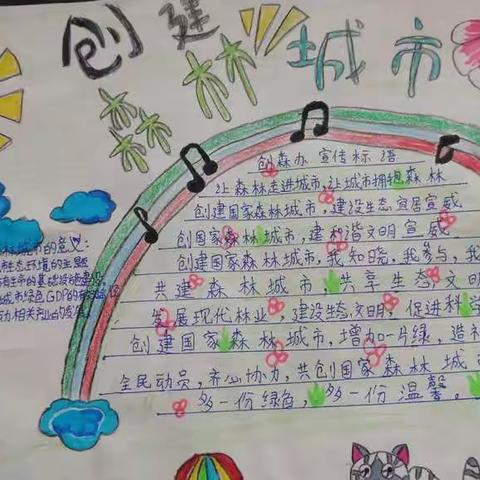 创建
城市
创森办 宣传标语
让森林走进城市,让城市拥抱森林
创建国家森林城市,建设生态宜居宣威
创国家森林城市,建和谐文明宣威
创建国家森林城市,我知晓,我参与,我
共建森林城市,共享生态文明
发展现代林业,建设生态文明,促进科学
创建国家森林城市,增加一片绿,造
全民动员,齐心协力,共创国家森林城
多一份绿色,多一份温馨。
林城市的意义:
生态环境的主题
有生命的基础设施建设
城市绿色GDP的有效途径
相关产业的发展